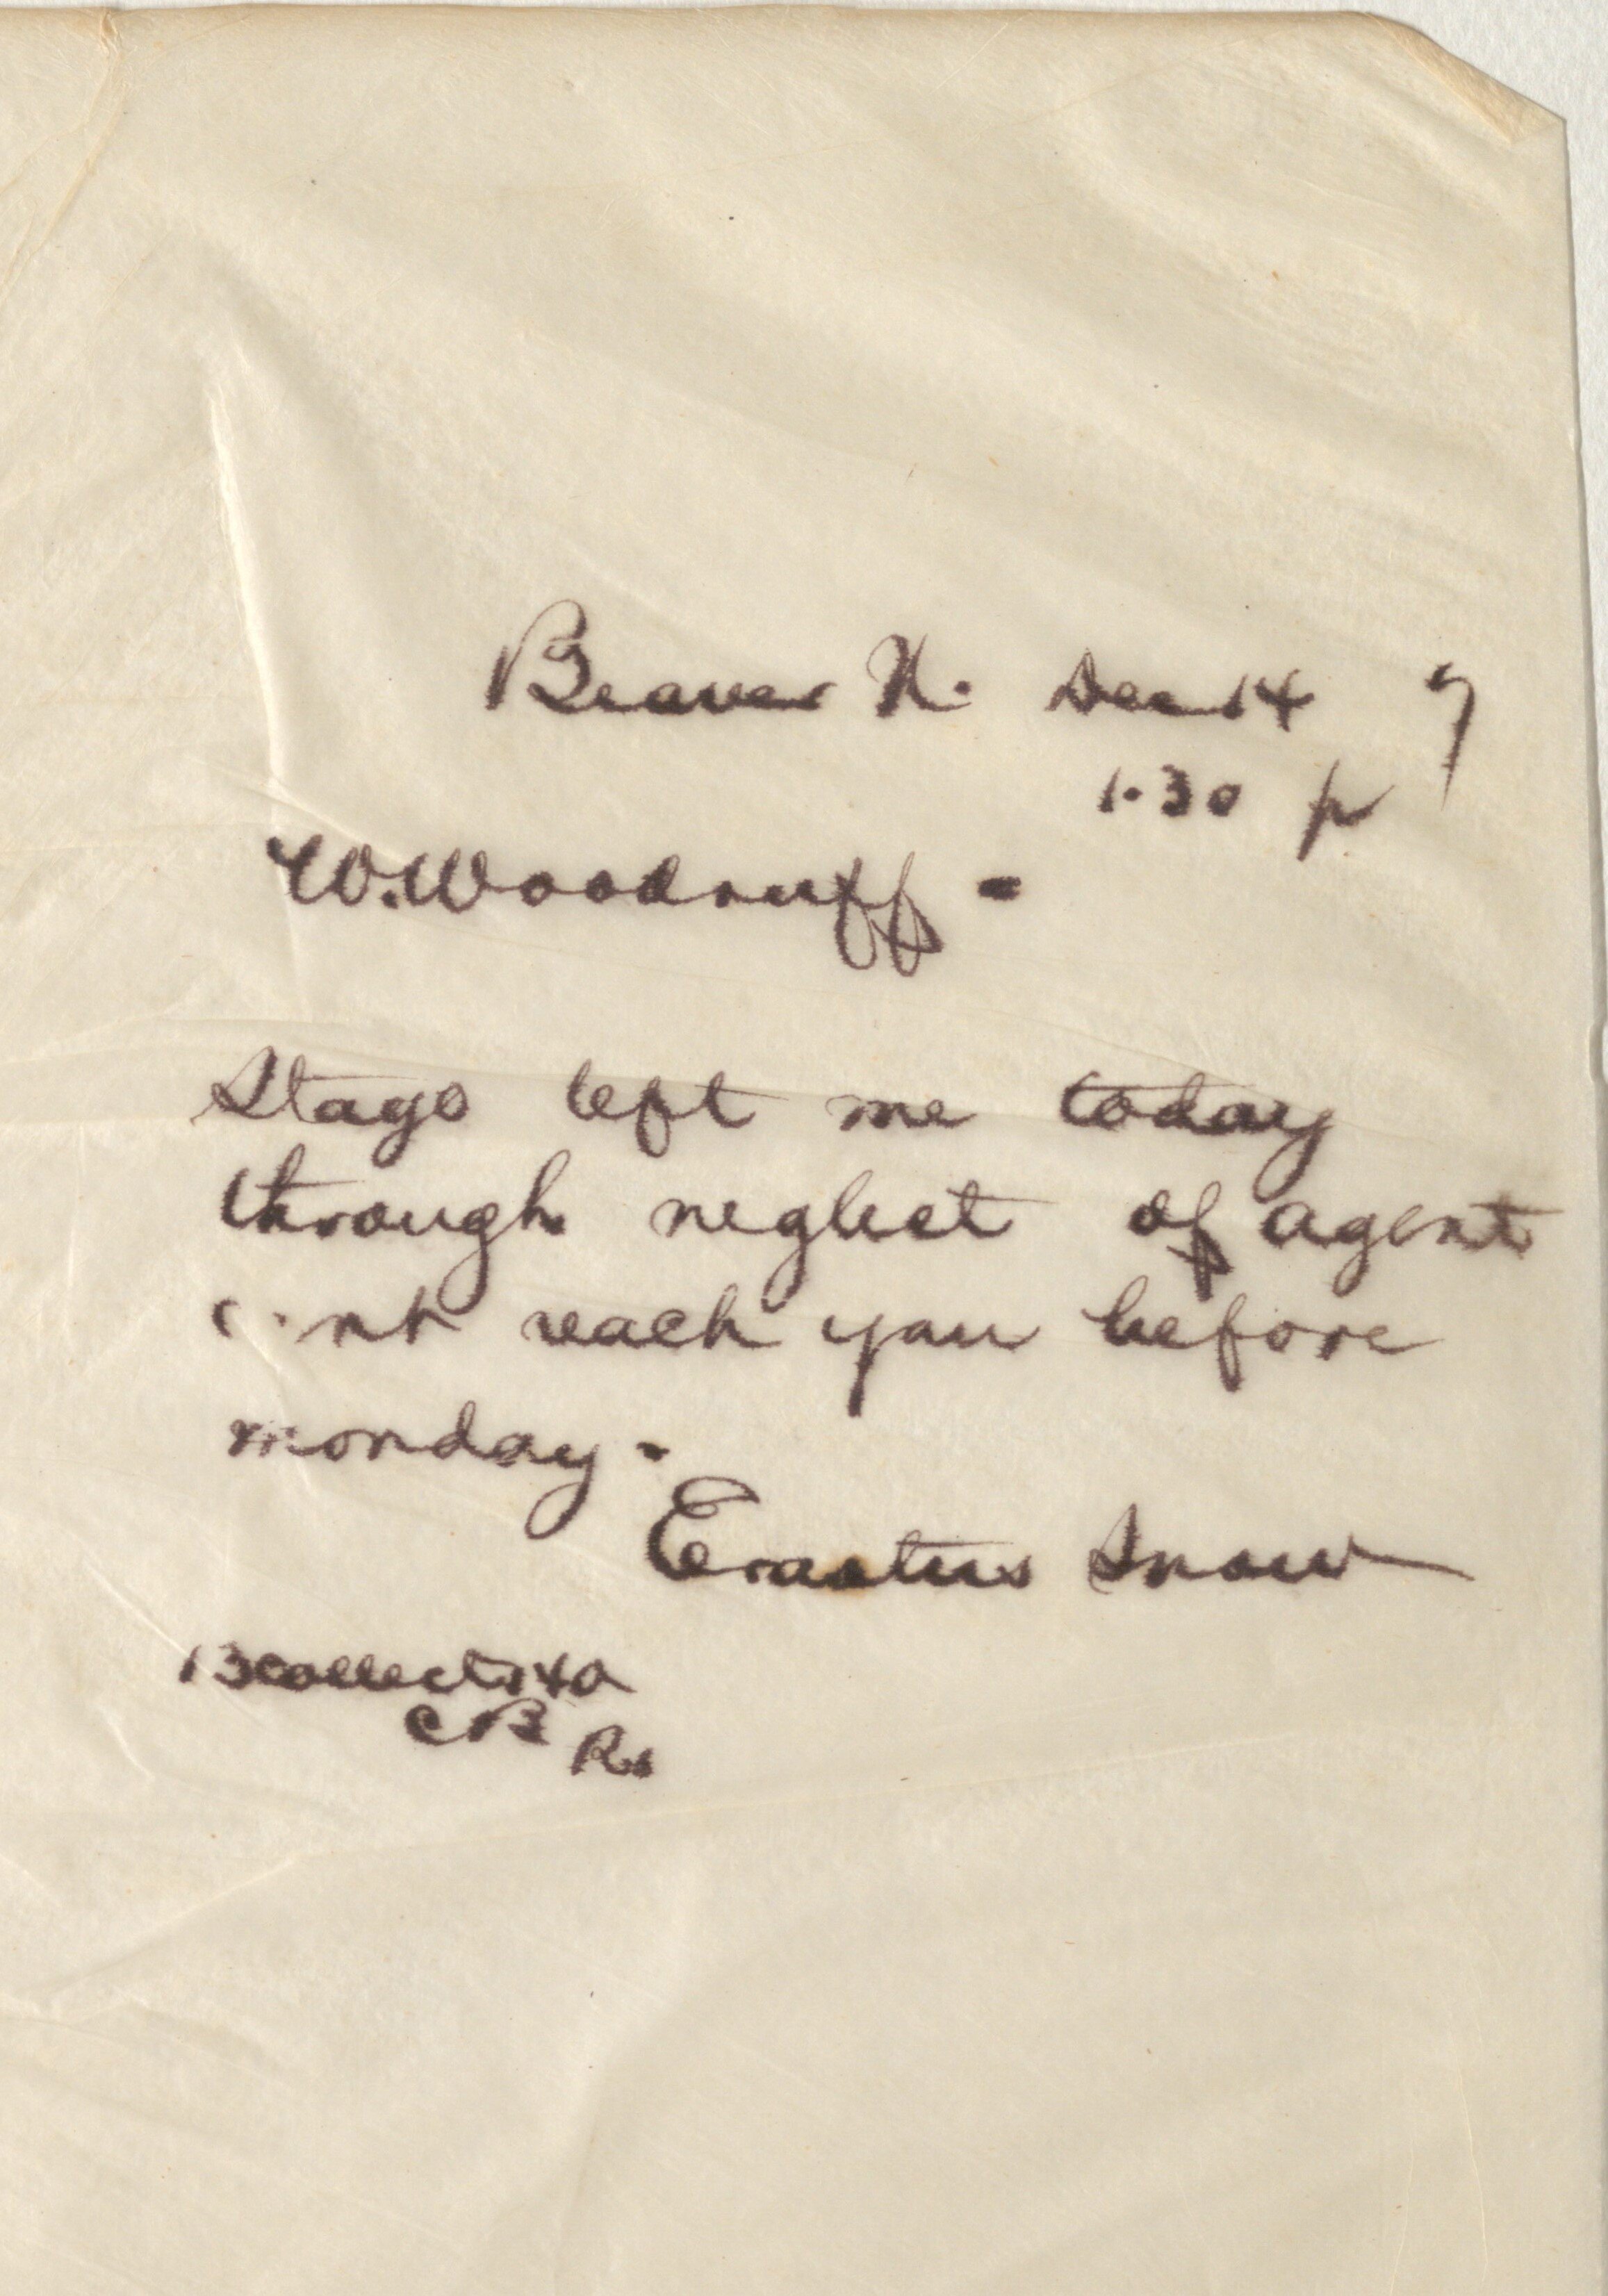 Beaver U. Dec 14 7
1.30 p
W. Woodruff -
Stage left me today
through neglect of agent
cant reach you before
monday -
Erastus Snow
13 collect 140
CB Rs